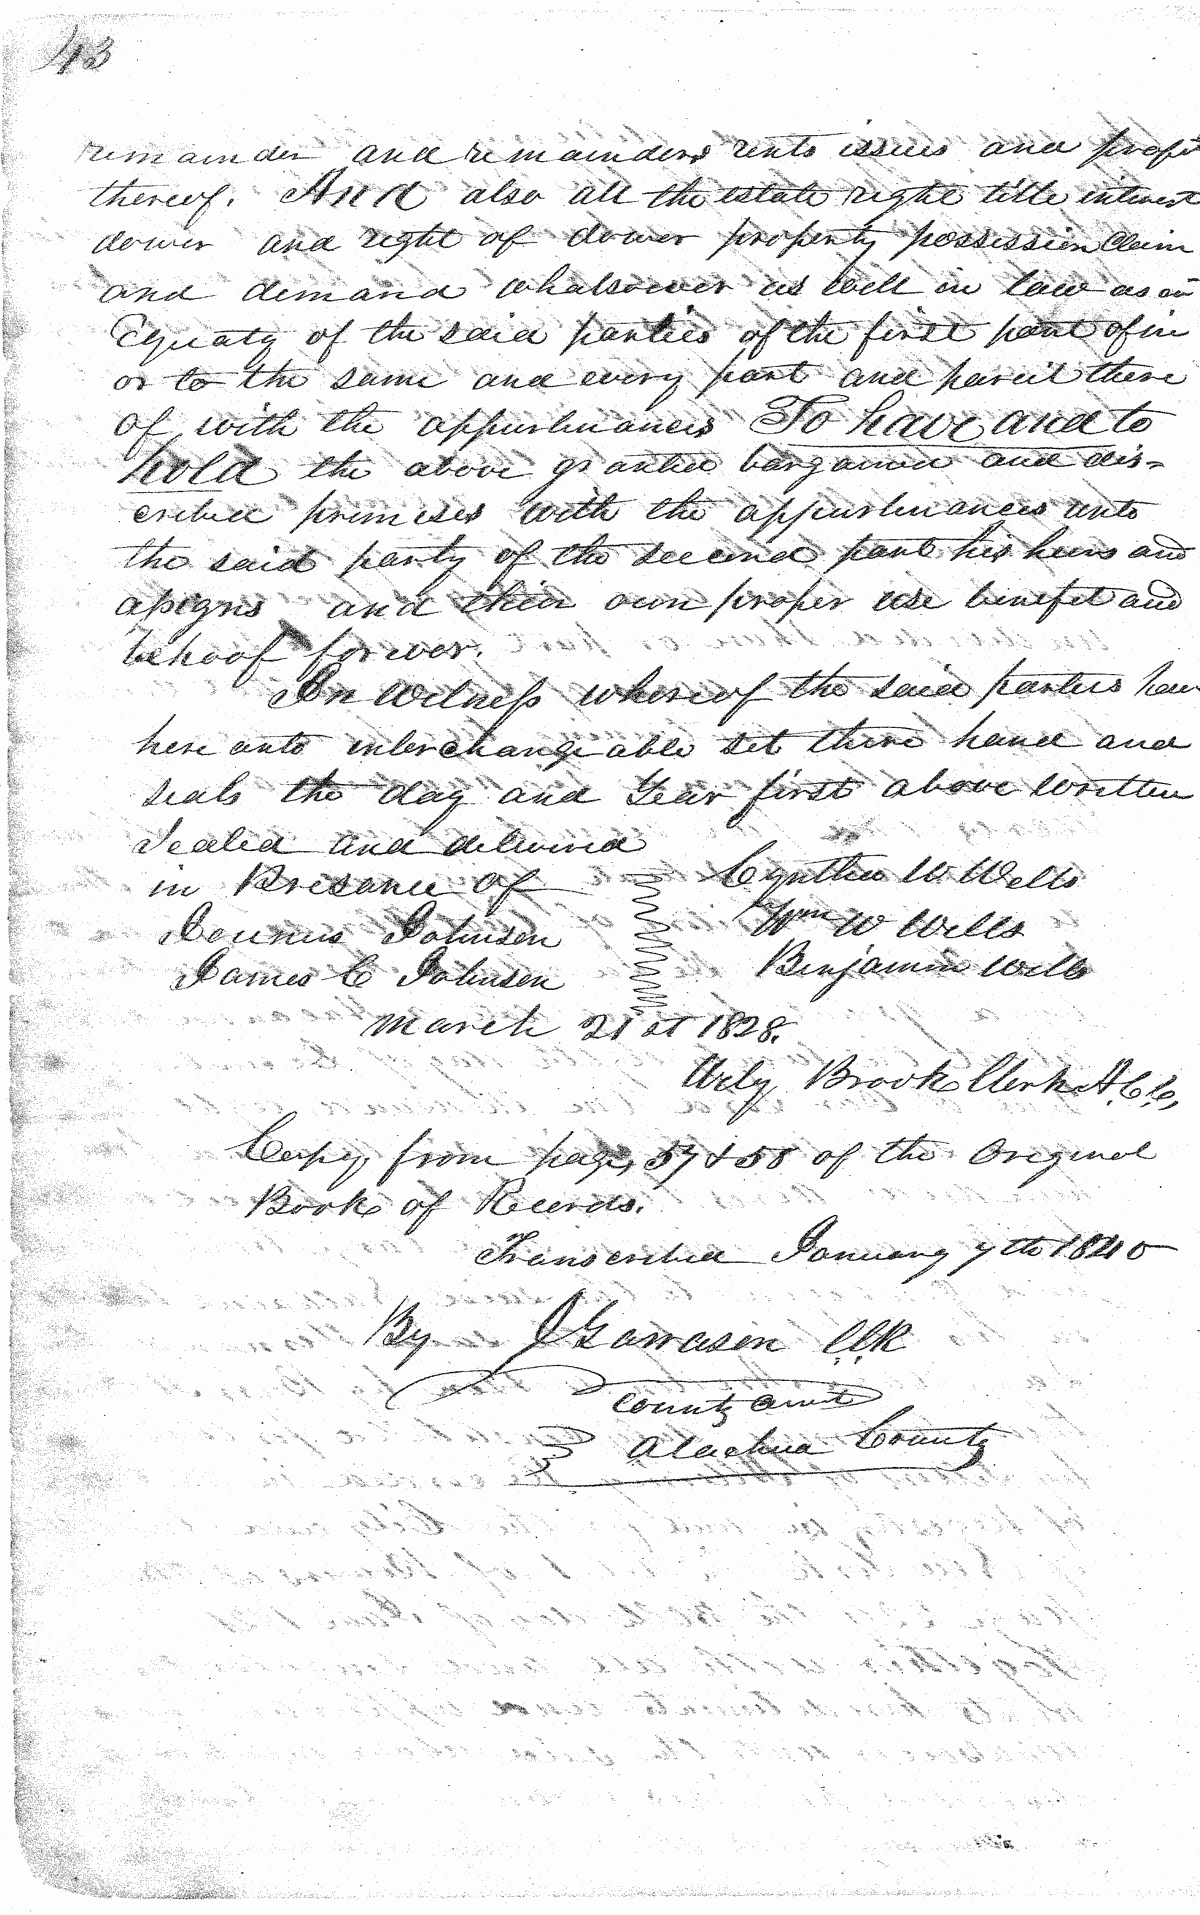 43
remainder and remainders rents issues and profit
thereof. And also all the estate right title interest
dower and right of dower property possession Claim
and demand whatsoever as well in law as in
Equaty of the said parties of the first part of in
or to the same and every part and parcil there
of with the appurtinances To have and to
hold the above granted bargained and dis-
cribed primises with the appurtinances unto
the said party of the second part his heirs and
assigns and their own proper use benefit and
behoof forever.
In Witness whereof the said parties have
here unto interchangeable set there hand and
seals the day and Year first above written
Sealed and delivered
in Presance of
Cynthia W Wells
Johnson
Wm W Wells
James C Johnson
Benjamin Wells
March 21st 1828.
Brook Clerk A.C.C,
Copy, from page, 57 & 58 of the Original
Book of Records.
Transcribed January 7th 1840
By J Garrason Clk
County Court
Alachua County